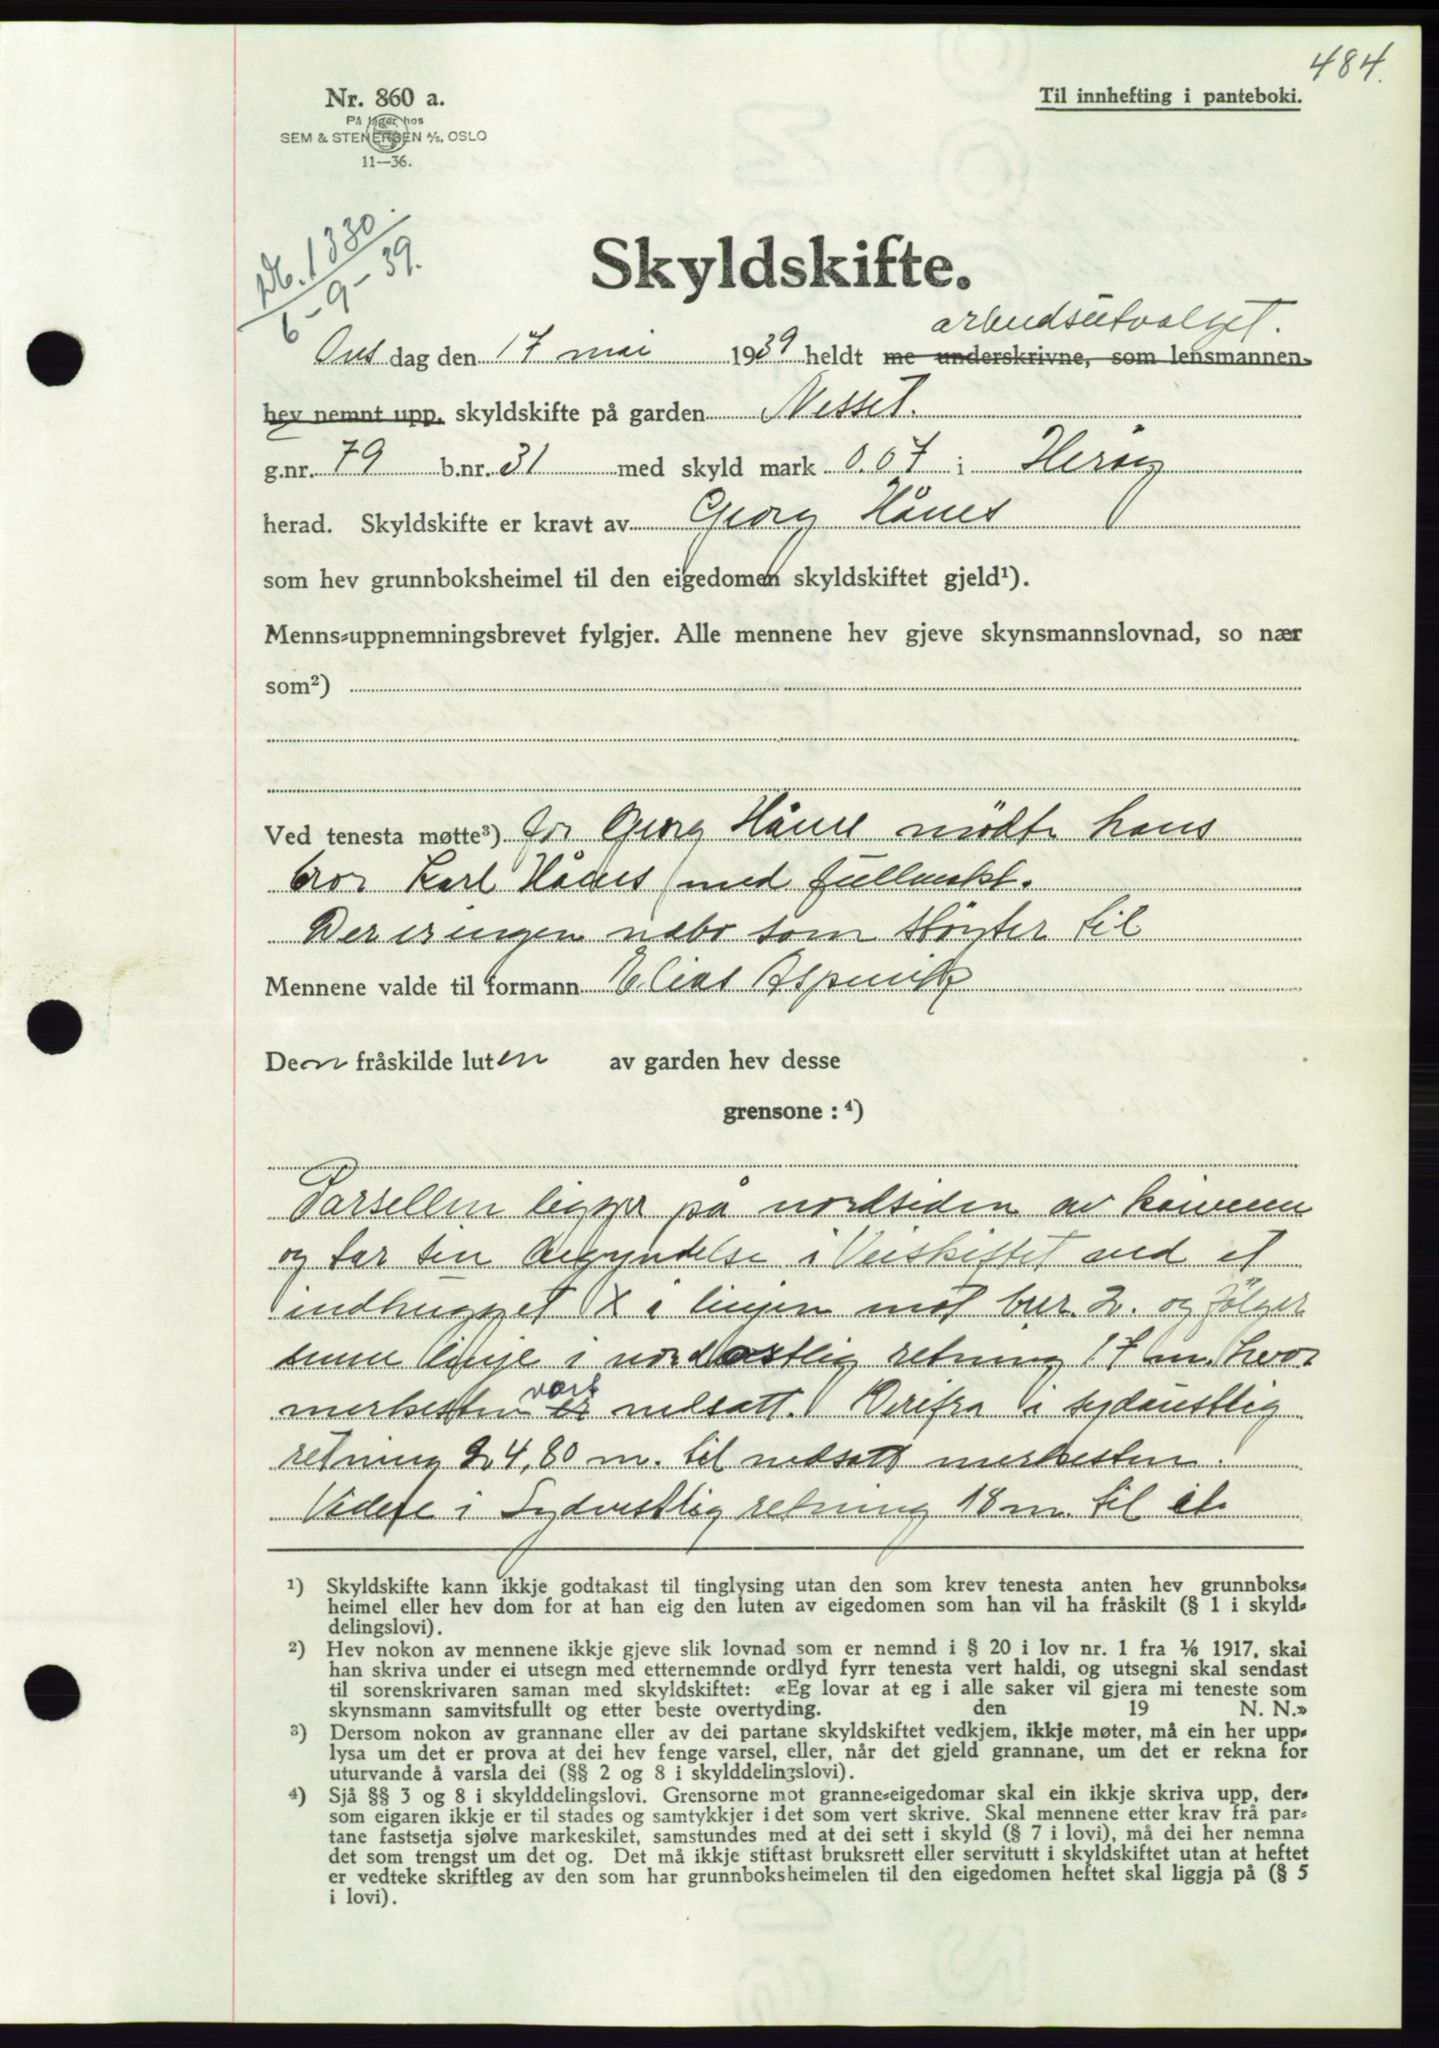 484.
Nr. 860 a.
Til innhefting i panteboki.
På lager hos
SEM & STENERSEN A/S, OSLO
11—36.
Nr. 1330
6-9-39.
Skyldskifte.
arbeidsutvalget.
Ons dag den 17 mai 1939 heldt me underskrivne, som lensmannen
hev nemnt upp, skyldskifte på garden Nesset.
g.nr. 79 b.nr. 31 med skyld mark 0.07 i Herøy
herad. Skyldskifte er kravt av Georg Hånes
som hev grunnboksheimel til den eigedomen skyldskiftet gjeld¹).
Menns-uppnemningsbrevet fylgjer. Alle mennene hev gjeve skynsmannslovnad, so nær
som²)
Ved tenesta møtte³) for Georg Hånes mødte hans
bror Karl Hånes med fullmakt.
Der er ingen nabo som støyter til
Mennene valde til formann Elias Aspevik
Den fråskilde luten av garden hev desse
grensone : ⁴)
Parsellen ligger på nordsiden av
og tar sin begyndelse i Veiskiftet ved et
indhugget X i linjen mot bnr. 2. og følger
denne linje i nordostlig retning 17 m. hvor
merkesten er vart nedsatt. Derifra i sydøustlig
retning 24,80 m. til nedsatt merkesten.
Videre i Sydvestlig retning 18 m. til et
¹) Skyldskifte kann ikkje godtakast til tinglysing utan den som krev tenesta anten hev grunnboks-
heimel eller hev dom for at han eig den luten av eigedomen som han vil ha fråskilt (§ 1 i skyld-
delingslovi).
²) Hev nokon av mennene ikkje gjeve slik lovnad som er nemnd i § 20 i lov nr. 1 fra 1/6 1917, skal
han skriva under ei utsegn med etternemnde ordlyd fyrr tenesta vert haldi, og utsegni skal sendast
til sorenskrivaren saman med skyldskiftet: «Eg lovar at eg i alle saker vil gjera mi teneste som
skynsmann samvitsfullt og etter beste overtyding. den 19 N. N.»
³) Dersom nokon av grannane eller av dei partane skyldskiftet vedkjem, ikkje møter, må ein her upp-
lysa um det er prova at dei hev fenge varsel, eller, når det gjeld grannane, um det er rekna for
uturvande å varsla dei (§§ 2 og 8 i skylddelingslovi).
⁴) Sjå §§ 3 og 8 i skylddelingslovi. Grensorne mot granne-eigedomar skal ein ikkje skriva upp, der-
som eigaren ikkje er til stades og samtykkjer i det som vert skrive. Skal mennene etter krav frå par-
tane fastsetja sjølve markeskilet, samstundes med at dei sett i skyld (§ 7 i lovi), må dei her nemna
det som trengst um det og. Det må ikkje stiftast bruksrett eller servitutt i skyldskiftet utan at heftet
er vedteke skriftleg av den som har grunnboksheimelen til den eigedomen heftet skal liggja på (§ 5
i lovi).